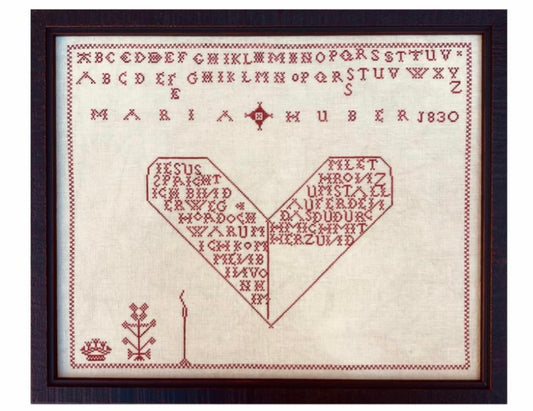 ABCEDDEFGHIKLMNOPQRSSTTUV
ABCDEFGHIKLMNOPQRSTUVWXY
E S Z
MARIA HUBER 1830
JESUS
SPRICHT
ICHBIND
ERWEG
HÖRDOCH
WARUM
ICHKOM
MEINB
INVO
NH
IM
MLET
HROINZ
UMSTALL
AUFERDEN
DASDUDURC
HMICHMIT
HERZUND